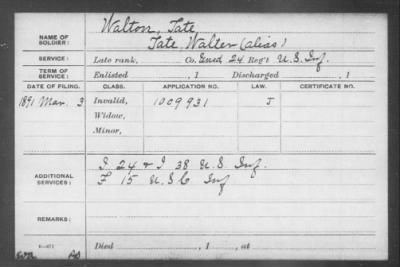 NAME OF SOLDIER: Walton, Tate
Tate Walter (alias)
SERVICE: Late rank, Co. Gned 24 Reg't U.S. Inf.
TERM OF SERVICE: Enlisted , 1 Discharged , 1
DATE OF FILING. CLASS. APPLICATION NO. LAW. CERTIFICATE NO.
1891 Mar. 3 Invalid, 1009931 J
Widow,
Minor,
ADDITIONAL SERVICES: I 24 & I 38 U.S. Inf.
F 15 U.S.C. Inf
REMARKS:
Died , 1 , at